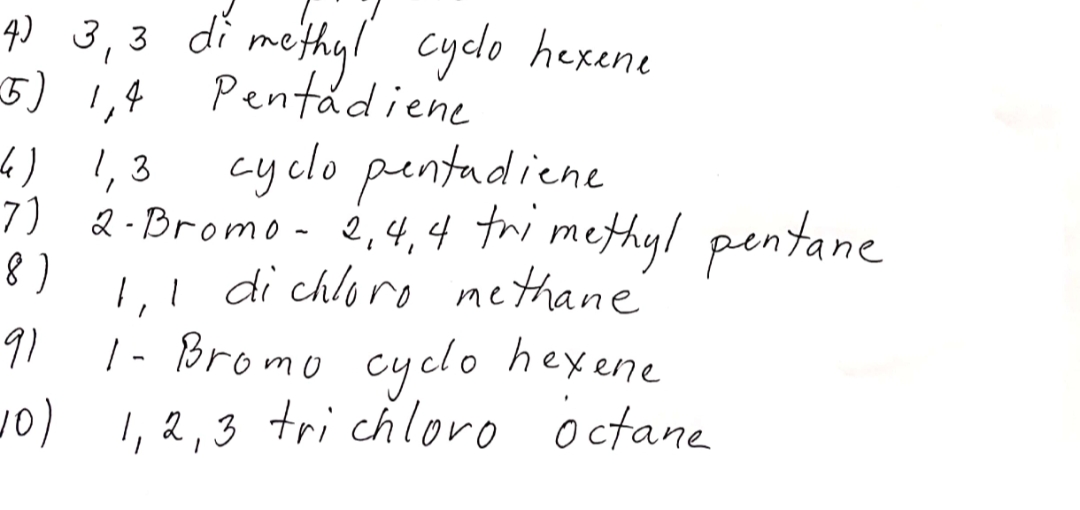 4) 3,3 di methyl cyclo hexene
5) 1,4 Pentadiene
6) 1,3 cyclo pentadiene
7) 2-Bromo - 2,4,4 tri methyl pentane
8) 1,1 di chloro methane
9) 1- Bromo cyclo hexene
10) 1,2,3 tri chloro octane